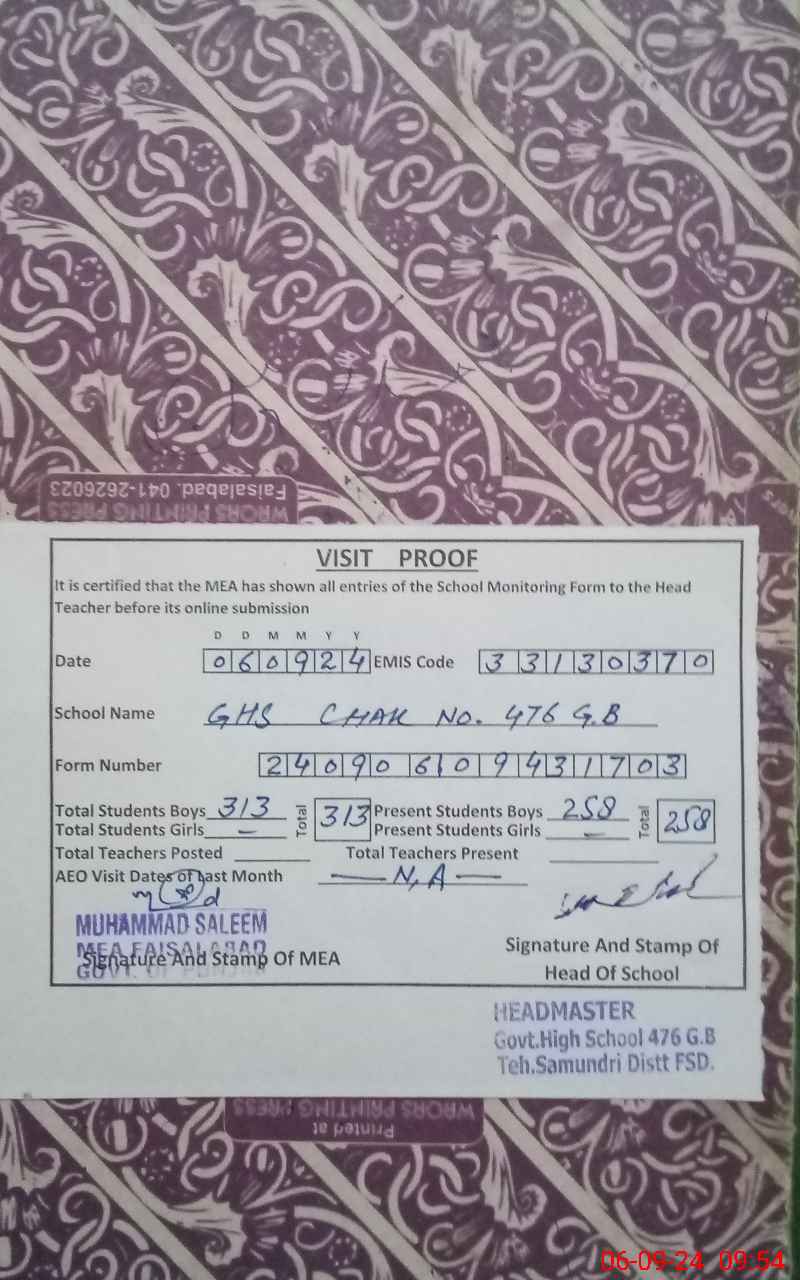 Faisalabad. 041-2626023
WRORS PRINTING PRESS
VISIT PROOF
It is certified that the MEA has shown all entries of the School Monitoring Form to the Head
Teacher before its online submission
D D M M Y Y
Date 060924 EMIS Code 33130370
School Name GHS CHAK NO. 476 G.B
Form Number 24090609431703
Total Students Boys 313 Total 313 Present Students Boys 258 Total 258
Total Students Girls — Present Students Girls —
Total Teachers Posted Total Teachers Present
AEO Visit Dates of Last Month — N,A —
MUHAMMAD SALEEM
MEA FAISALABAD
GOVT. OF PUNJAB
Signature And Stamp Of MEA
Signature And Stamp Of
Head Of School
HEADMASTER
Govt.High School 476 G.B
Teh.Samundri Distt FSD.
WRORS PRINTING PRESS
Printed at
06-09-24 09:54